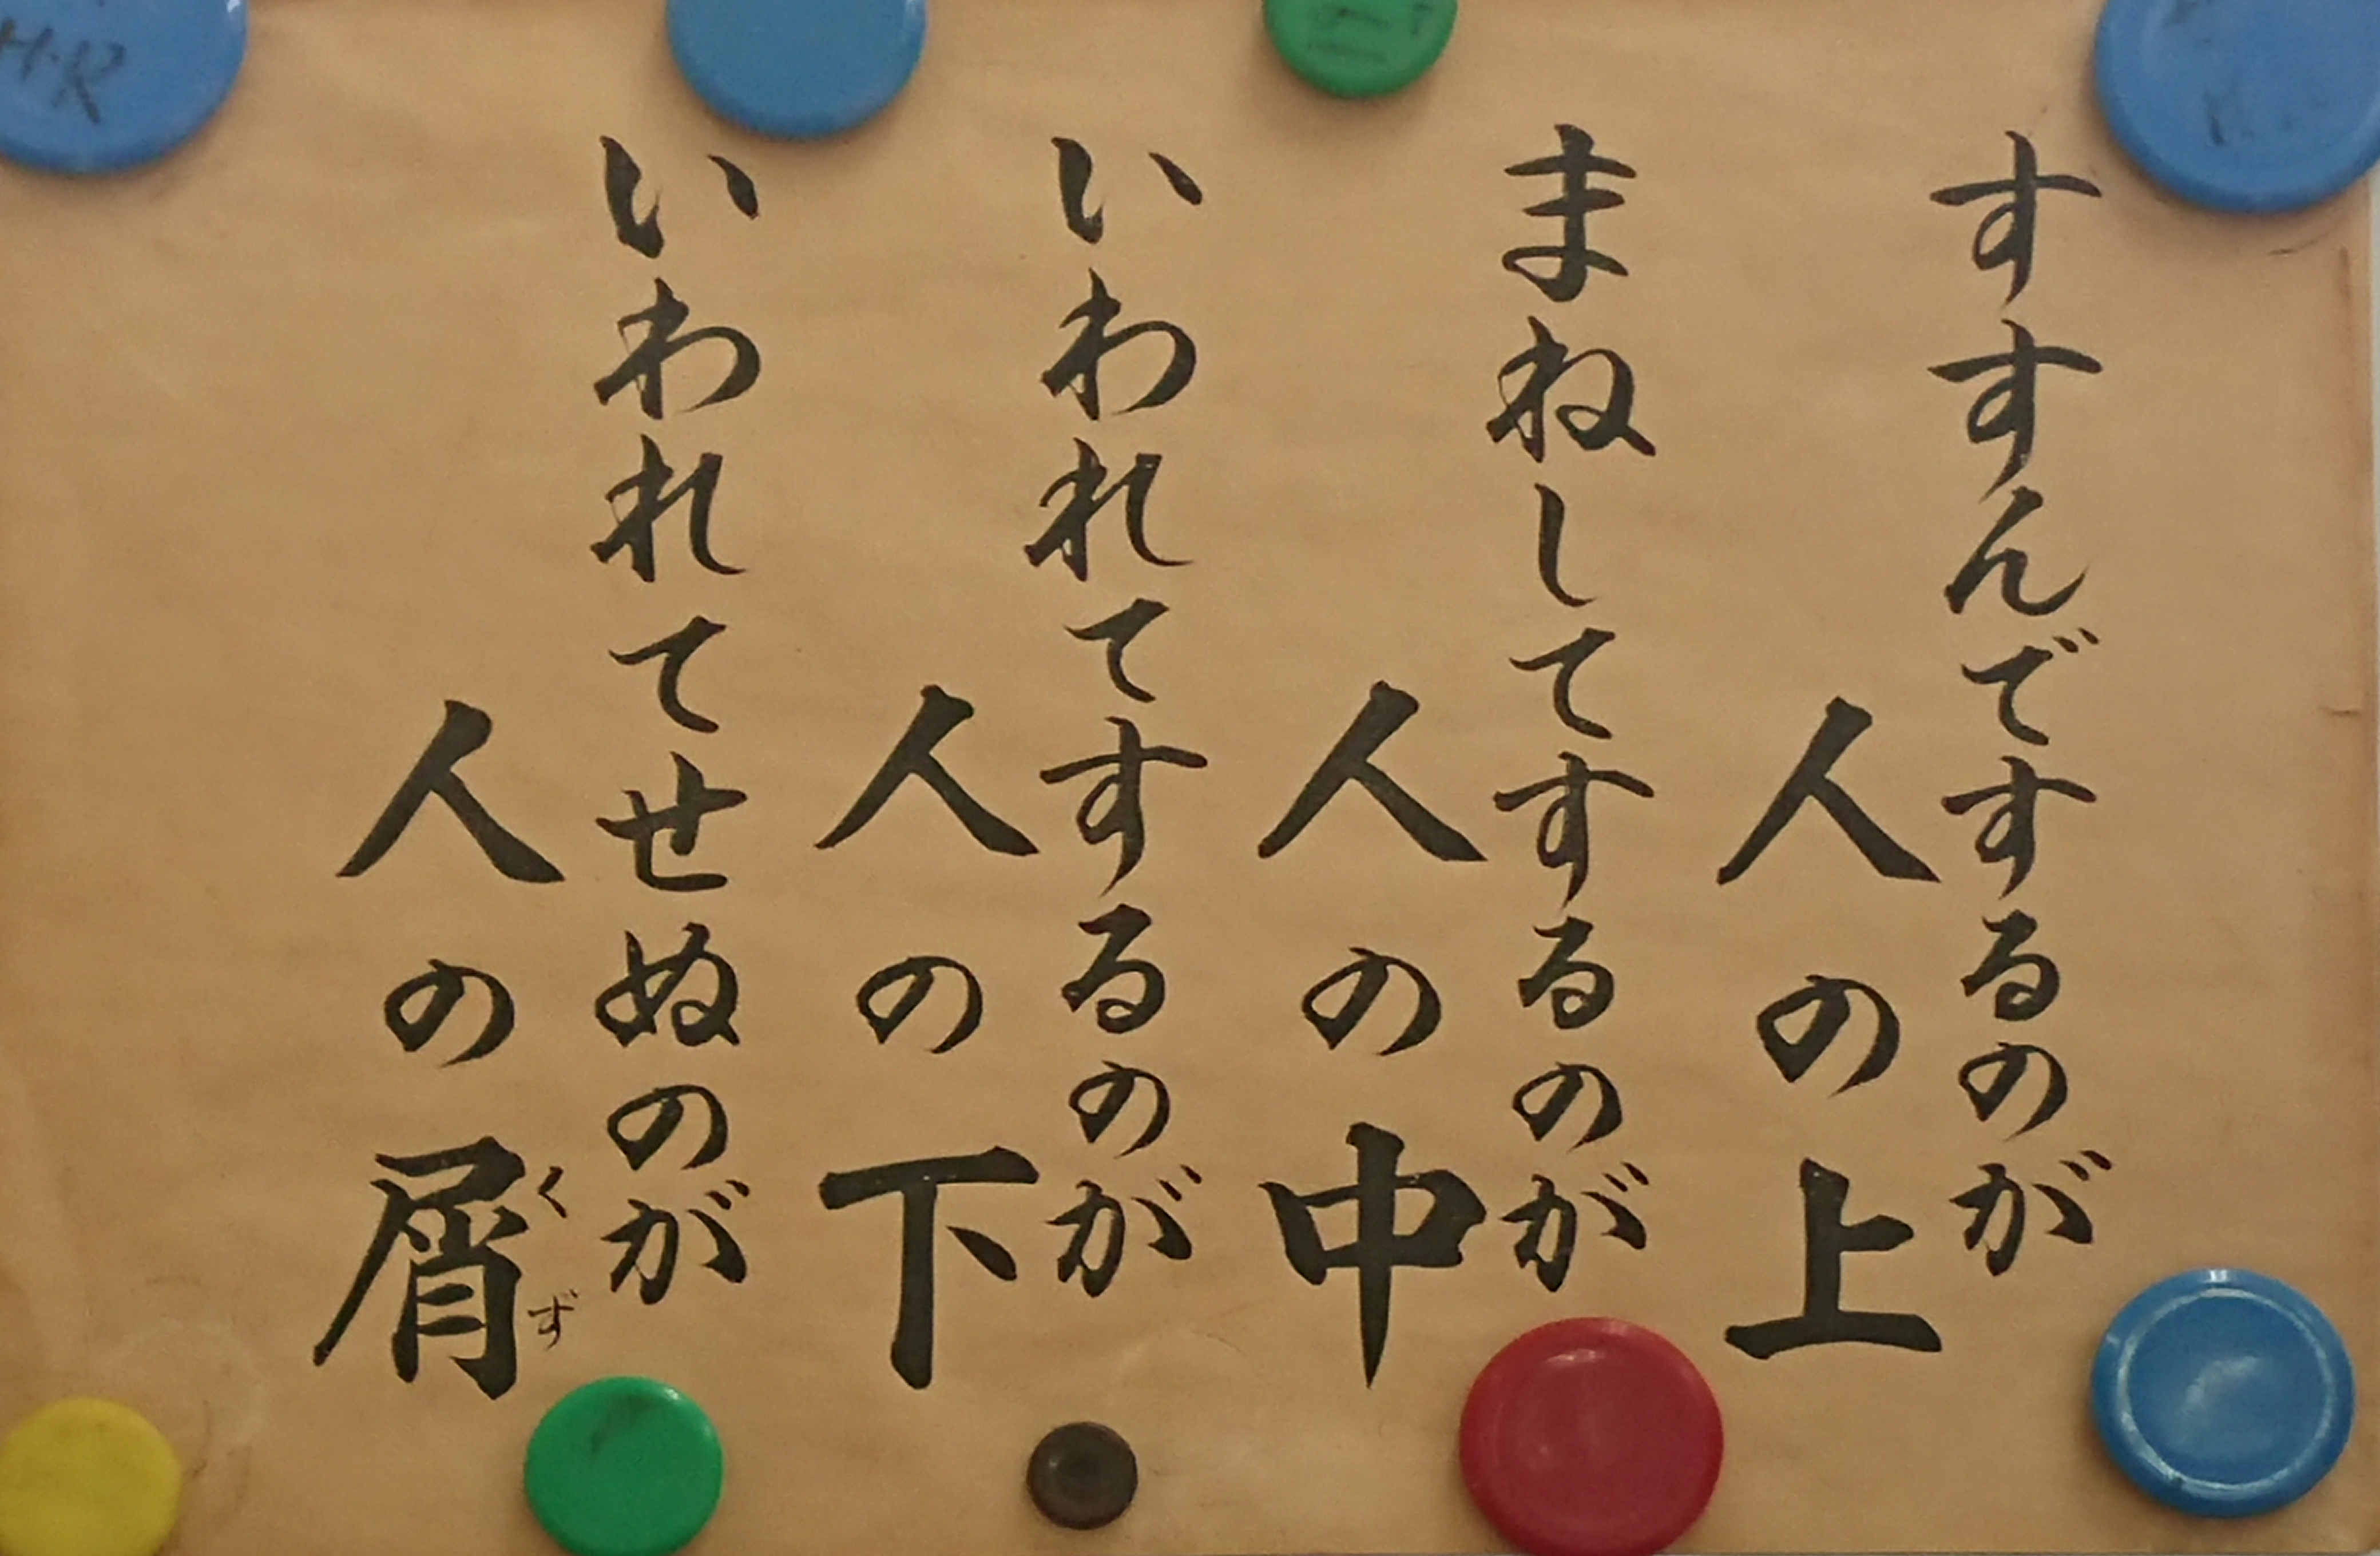 すすんでするのが
人の上
まねしてするのが
人の中
いわれてするのが
人の下
いわれてせぬのが
人の屑
くず
H・K